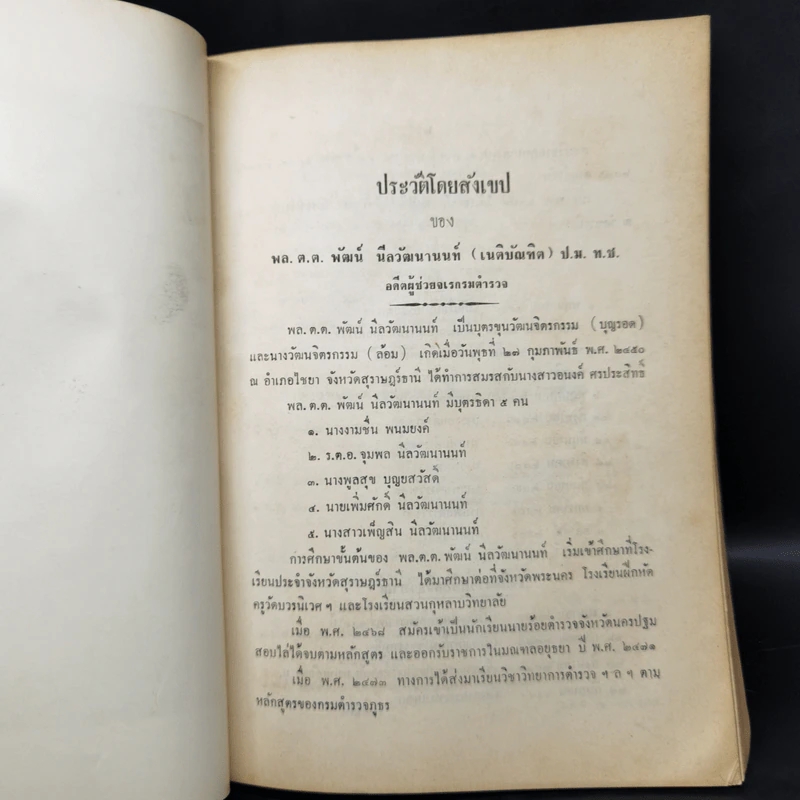 ประวัติโดยสังเขป
ของ
พล. ต. ต. พัฒน์ นีลวัฒนานนท์ (เนติบัณฑิต) ป.ม. ท.ช.
อดีตผู้ช่วยจเรกรมตำรวจ
พล. ต.ต. พัฒน์ นีลวัฒนานนท์ เป็นบุตรขุนวัฒนจิตรกรรม (บุญรอด)
และนางวัฒนจิตรกรรม (ล้อม) เกิดเมื่อวันพุธที่ ๒๗ กุมภาพันธ์ พ.ศ. ๒๔๕๐
ณ อำเภอไชยา จังหวัดสุราษฎร์ธานี ได้ทำการสมรสกับนางสาวอนงค์ ศรประสิทธิ์
พล. ต.ต. พัฒน์ นีลวัฒนานนท์ มีบุตรธิดา ๕ คน
๑. นางงามชื่น พนมยงค์
๒. ร.ต.อ. จุมพล นีลวัฒนานนท์
๓. นางพูลสุข บุญยสวัสดิ์
๔. นายเพิ่มศักดิ์ นีลวัฒนานนท์
๕. นางสาวเพ็ญสิน นีลวัฒนานนท์
การศึกษาชั้นต้นของ พล.ต.ต. พัฒน์ นีลวัฒนานนท์ เริ่มเข้าศึกษาที่โรง-
เรียนประจำจังหวัดสุราษฎร์ธานี ได้มาศึกษาต่อที่จังหวัดพระนคร โรงเรียนฝึกหัด
ครูวัดบวรนิเวศ ฯ และโรงเรียนสวนกุหลาบวิทยาลัย
เมื่อ พ.ศ. ๒๔๖๘ สมัครเข้าเป็นนักเรียนนายร้อยตำรวจจังหวัดนครปฐม
สอบไล่ได้จบตามหลักสูตร และออกรับราชการในมณฑลอยุธยา ปี พ.ศ. ๒๔๗๑
เมื่อ พ.ศ. ๒๔๗๓ ทางการได้ส่งมาเรียนวิชาวิทยาการตำรวจ ฯ ล ฯ ตาม
หลักสูตรของกรมตำรวจภูธร